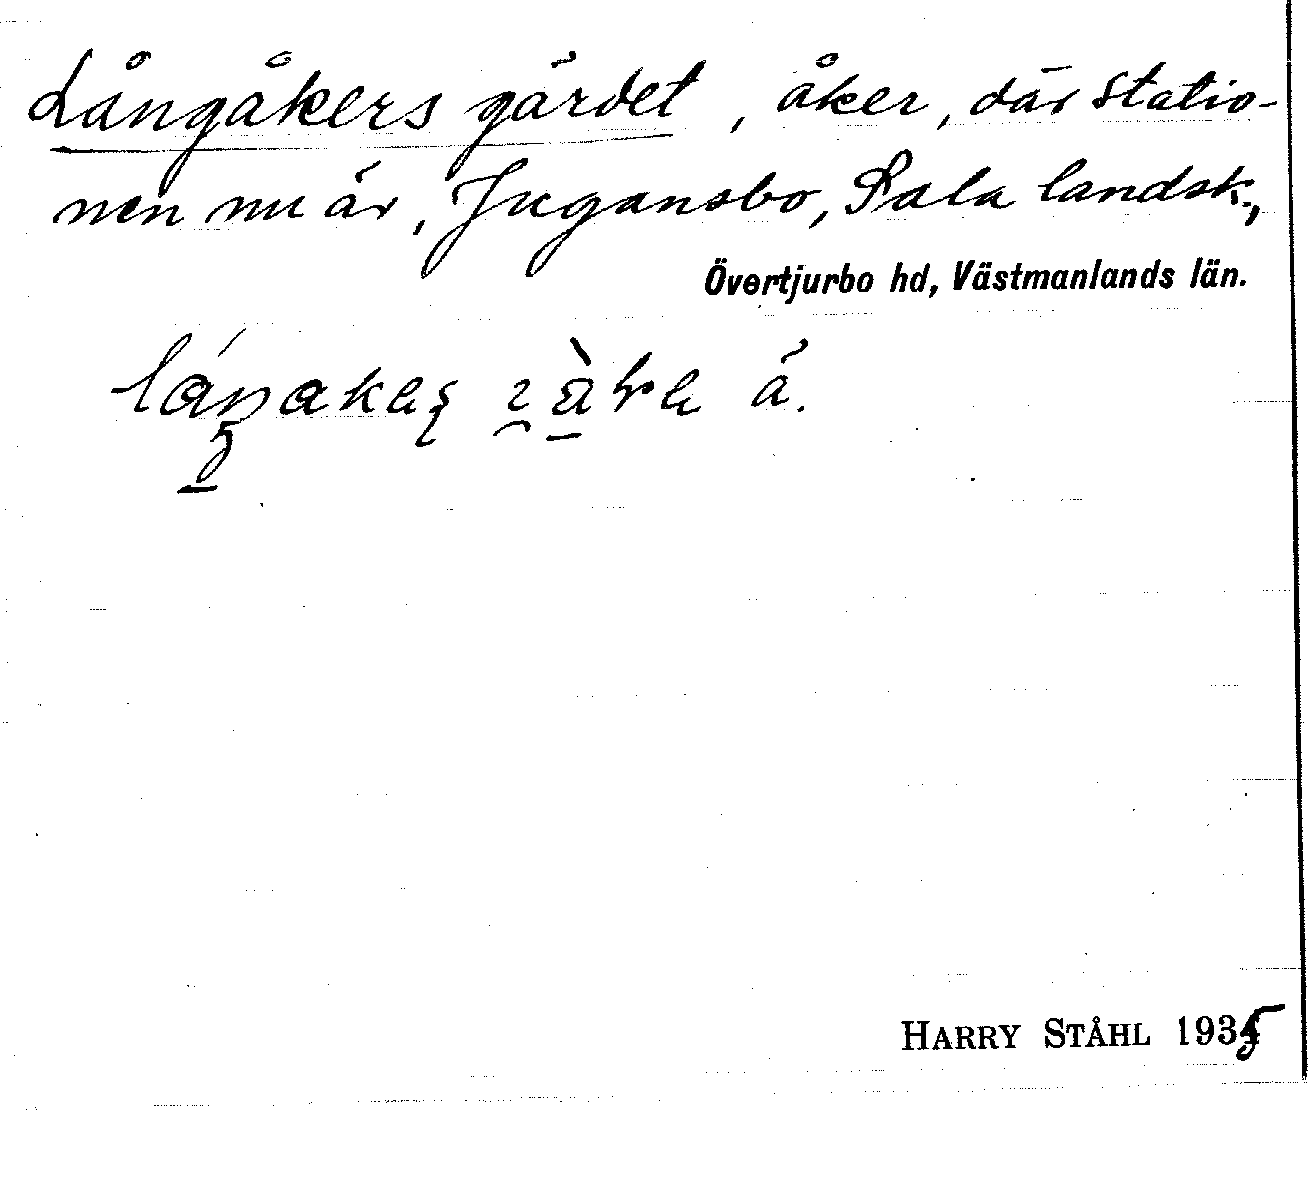 Långåkers gärdet, åker, där statio-
nen nu är, Jugansbo, Sala landsk.,
Övertjurbo hd, Västmanlands län.
HARRY STÅHL 1935